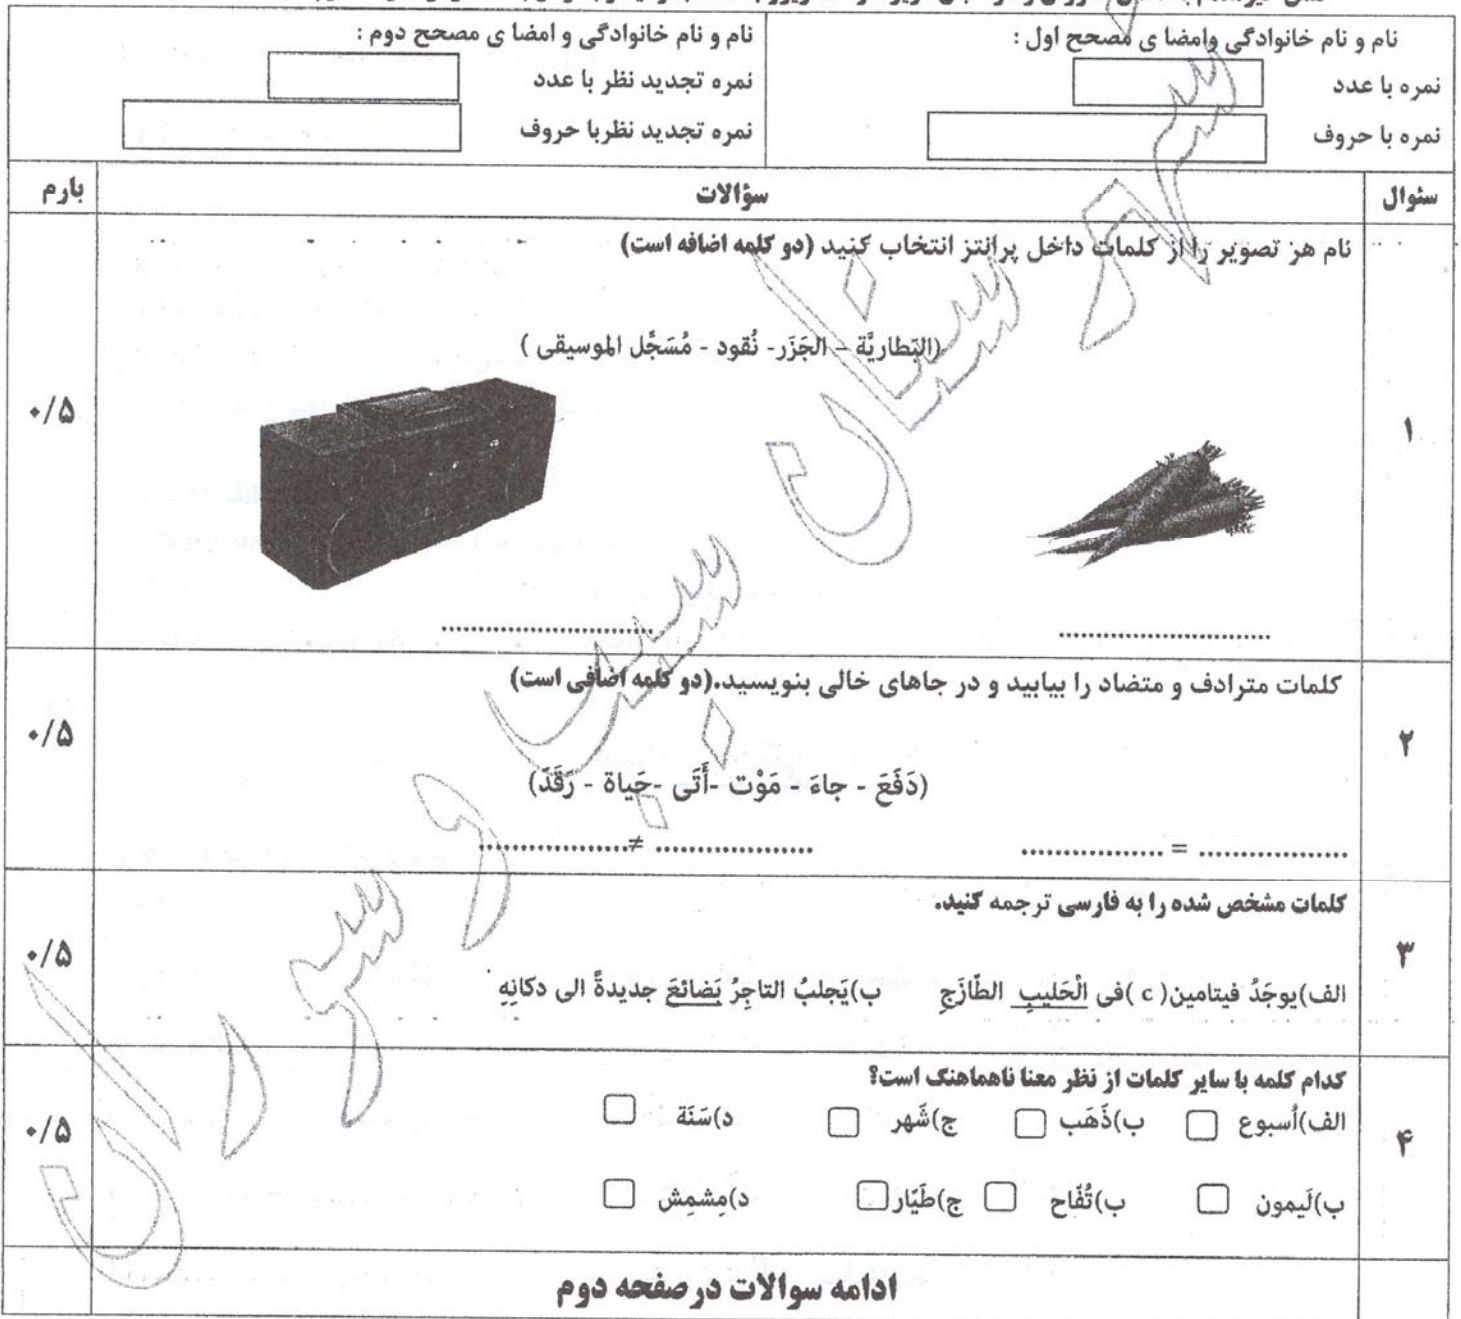 نام و نام خانوادگی وامضا ی مصحح اول :
نمره با عدد
نمره با حروف
نام و نام خانوادگی و امضا ی مصحح دوم :
نمره تجدید نظر با عدد
نمره تجدید نظربا حروف
سئوال سؤالات بارم
۱
نام هر تصویر را از کلمات داخل پرانتز انتخاب کنید (دو کلمه اضافه است)
(البَطاریَّة – الجَزَر- نُقود - مُسَجَّل الموسیقی )
........................ ........................
۰/۵
۲
کلمات مترادف و متضاد را بیابید و در جاهای خالی بنویسید.(دو کلمه اضافی است)
(دَفَعَ - جاءَ - مَوْت -أَتَی -حَیاة - رَقَدَ)
.................. = ................. ..................≠ ..................
۰/۵
۳
کلمات مشخص شده را به فارسی ترجمه کنید.
الف)یوجَدُ فیتامین( c )فی الْحَلیبِ الطّازَجِ ب)یَجلبُ التاجِرُ بَضائعَ جدیدةً الی دکانِهِ
۰/۵
۴
کدام کلمه با سایر کلمات از نظر معنا ناهماهنگ است؟
الف)اُسبوع ب)ذَهَب ج)شَهر د)سَنَة
ب)لَیمون ب)تُفّاح ج)طَیّار د)مِشمِش
۰/۵
ادامه سوالات در صفحه دوم